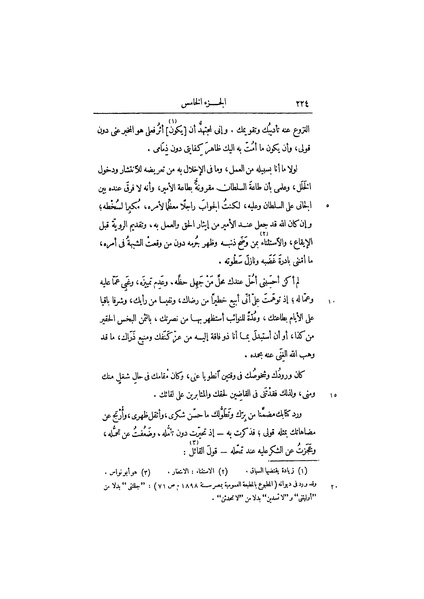 ٢٢٤ الجزء الخامس
النزوع عنه تأديبك وتقويمك . وإنى لمجتهدٌ أن [يكون](١) أثر فعلى هو المخبر عنى دون
قولى، وأن يكون ما أمُتّ به اليك ظاهر كفايتى دون ذِمامى .
لولا ما أنا بسبيله من العمل، وما فى الإخلال به من تعريضه للآنتشار ودخول
الخلل، وعلمى بأن طاعة السلطان مقرونةٌ بطاعة الأمير، وأنه لا فرق عنده بين
٥ الجانى على السلطان وعليه، لكنتُ الجواب راجلا معظّما لأمره، مكبرا لسُخْطه؛
وإن كان الله قد جعل عند الأمير من إيثار الحق والعمل به، وتقديم الرويّة قبل
الإيقاع، والآستثناء(٢) بمن وضح ذنبه وظهر جُرمه دون من وقعت الشبهةُ فى أمره،
ما أمننى بادرةَ غضبه ونازل سَطوته .
لم أكن أحسبنى أحُلّ عندك محلّ مَنْ جهل حظّه، وعدِم تمييزه، وغَبِىَ عمّا عليه
١٠ وعمّا له؛ إذ توهّمتَ علىّ أنى أبيع خطيرا من رضاك، ونفيسا من رأيك، وشرفا باقيا
على الأيام بطاعتك، وعُدّةً للنوائب أستظهر بها من نصرتك، بالثمن البخس الحقير
من كذا، أو أن أستبدل بما أنا ذو فاقة إليه من عزّ كنَفك ومنيع ذَراك، ما قد
وهب الله الغِنَى عنه بحمده .
كان ورودُك وشخوصُك فى وقتين آنطويا عنى، وكان مُقامك فى حال شغلٍ منك
١٥ ومنى، ولذلك فقدْتَنى فى القاضين لحقك والمثابرين على لقائك .
ورد كتابك مضمَّنا من برّك وتطوّلك ما حسّن شكرى، وأثقل ظهرى، وأُرتج عن
مضاهاتك بمثله قولى؛ فذكرت به — إذ تحيّرت دون تأمله، وضعُفتُ عن تحمله،
وعجَزتُ عن الشكر عليه عند تمحّله — قولَ القائل(٣) :
(١) زيادة يقتضيها السياق . (٢) الاستثناء : الانتظار . (٣) هو أبو نواس .
٢٠ وقد ورد فى ديوانه (المطبوع بالمطبعة العمومية بمصر سنة ١٨٩٨ ص ٧١) : "جللتنى" بدلا من
"أوليتنى" و "لا تسدين" بدلا من "لا تحدثن" .